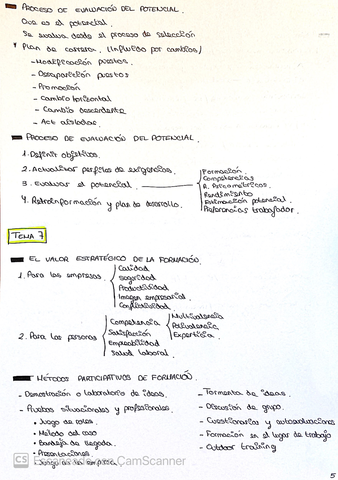 PROCESO DE EVALUACIÓN DEL POTENCIAL.
Que es el potencial.
Se evalua desde el proceso de selección
Plan de carrera. (Influido por cambios)
- Modificación puestos.
- Desaparición puestos
- Promoción
- Cambio horizontal
- Cambio descendente
- Act aisladas.
PROCESO DE EVALUACIÓN DEL POTENCIAL.
1. Definir objetivos.
2. Actualizar perfiles de exigencias.
3. Evaluar el potencial.
Formación.
Competencias
R. Psicométricos.
Rendimiento
Estimación potencial.
Referencias trabajador.
4. Retroinformación y plan de desarrollo.
TEMA 7
EL VALOR ESTRATÉGICO DE LA FORMACIÓN.
1. Para las empresas
Calidad
Seguridad
Productividad
Imagen empresarial
Conflictividad
2. Para las personas
Competencia
Satisfacción
Empleabilidad
Salud laboral.
Multivalencia
Polivalencia
Experticia.
MÉTODOS PARTICIPATIVOS DE FORMACIÓN.
- Demostración o laboratorio de ideas.
- Pruebas situacionales y profesionales.
• Juego de roles.
• Método del caso
• Bandeja de llegada.
• Presentaciones.
Juego de la empresa
- Tormenta de ideas.
- Discusión de grupo.
- Cuestionarios y autoevaluaciones
- Formación en el lugar de trabajo
- Outdoor training
CS CamScanner
5